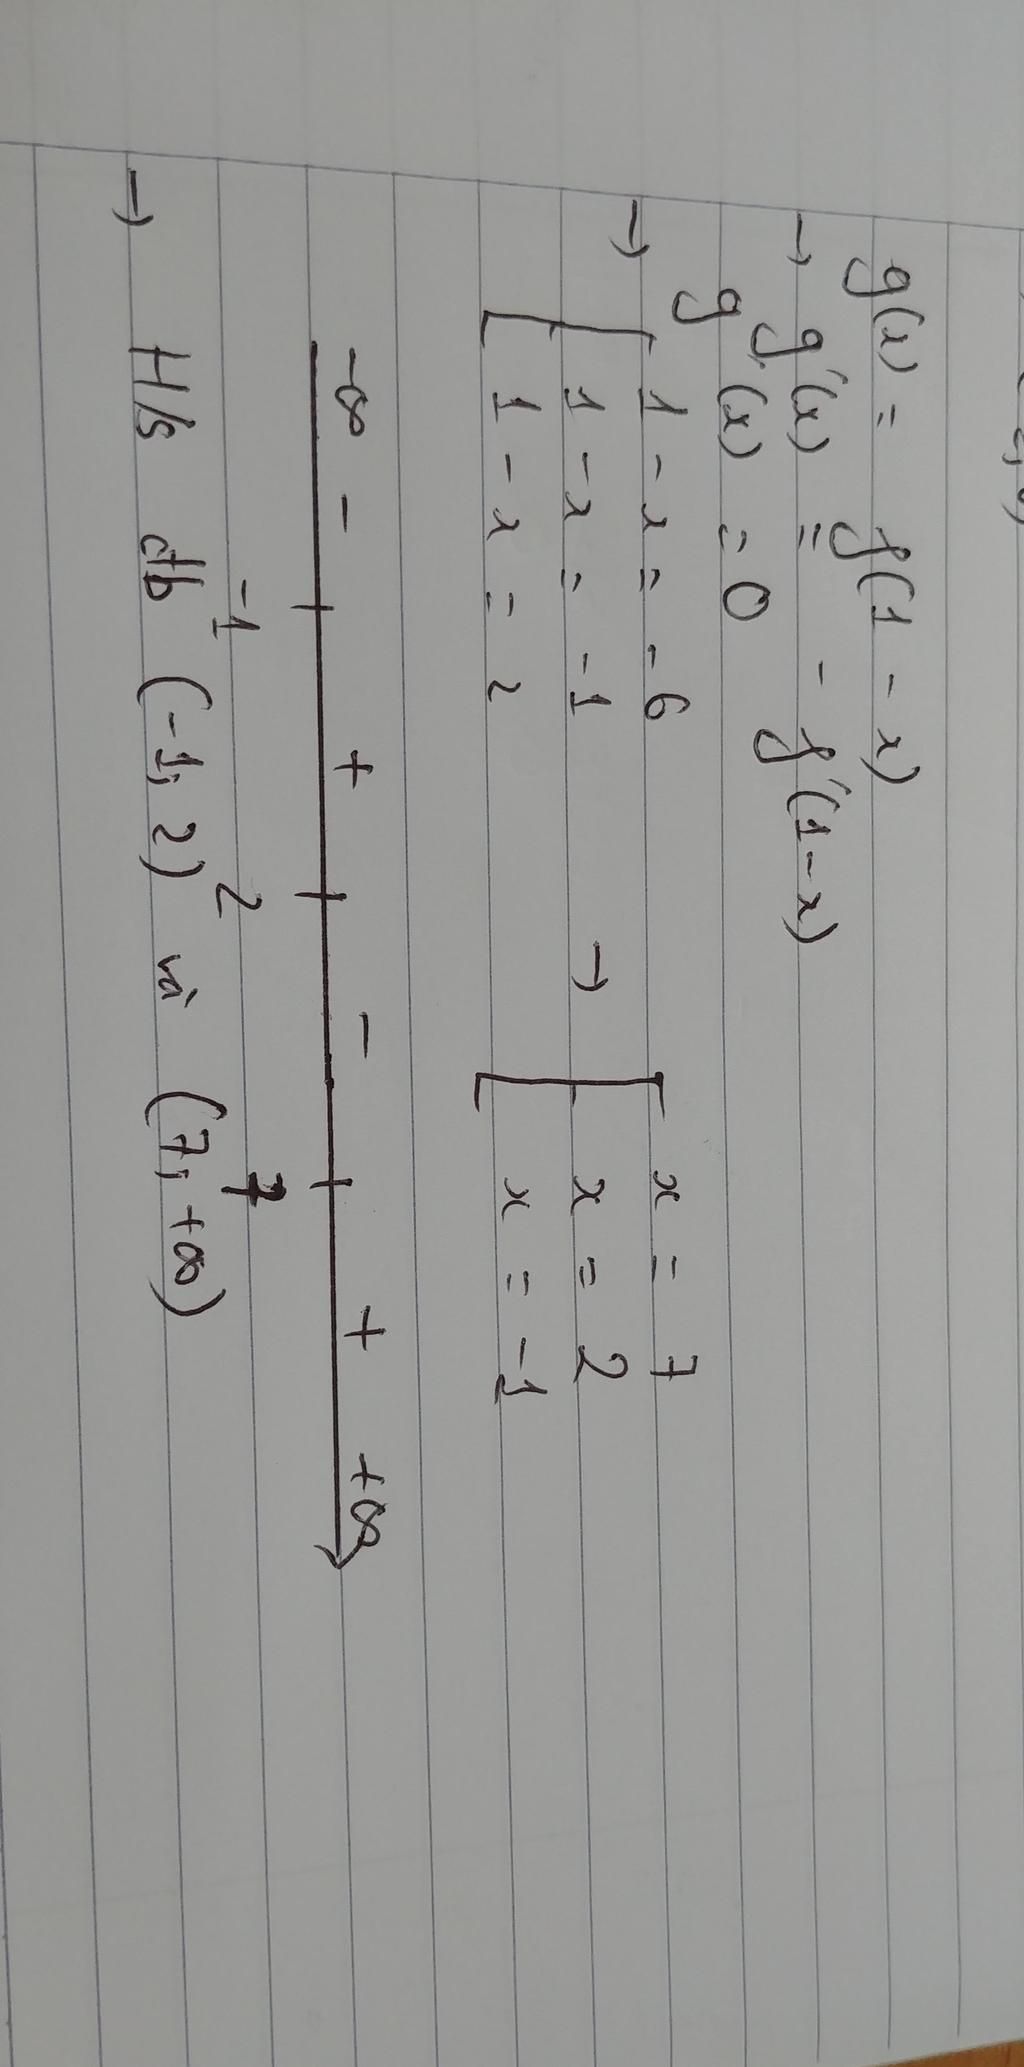 g(x) = f(1 - x)
→ g'(x) = - f'(1-x)
g'(x) = 0
→ [ 1 - x = -6 → [ x = 7
1 - x = -1 x = 2
1 - x = 2 x = -1
-∞ - + - + +∞
-1 2 7
→ H/s đb (-1; 2) và (7; +∞)